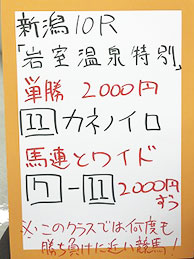 新潟10R
「岩室温泉特別」
単勝 2000円
11 カネノイロ
馬連とワイド
7-11 2000円ずつ
※このクラスでは何度も
勝ち負けに近い競馬!